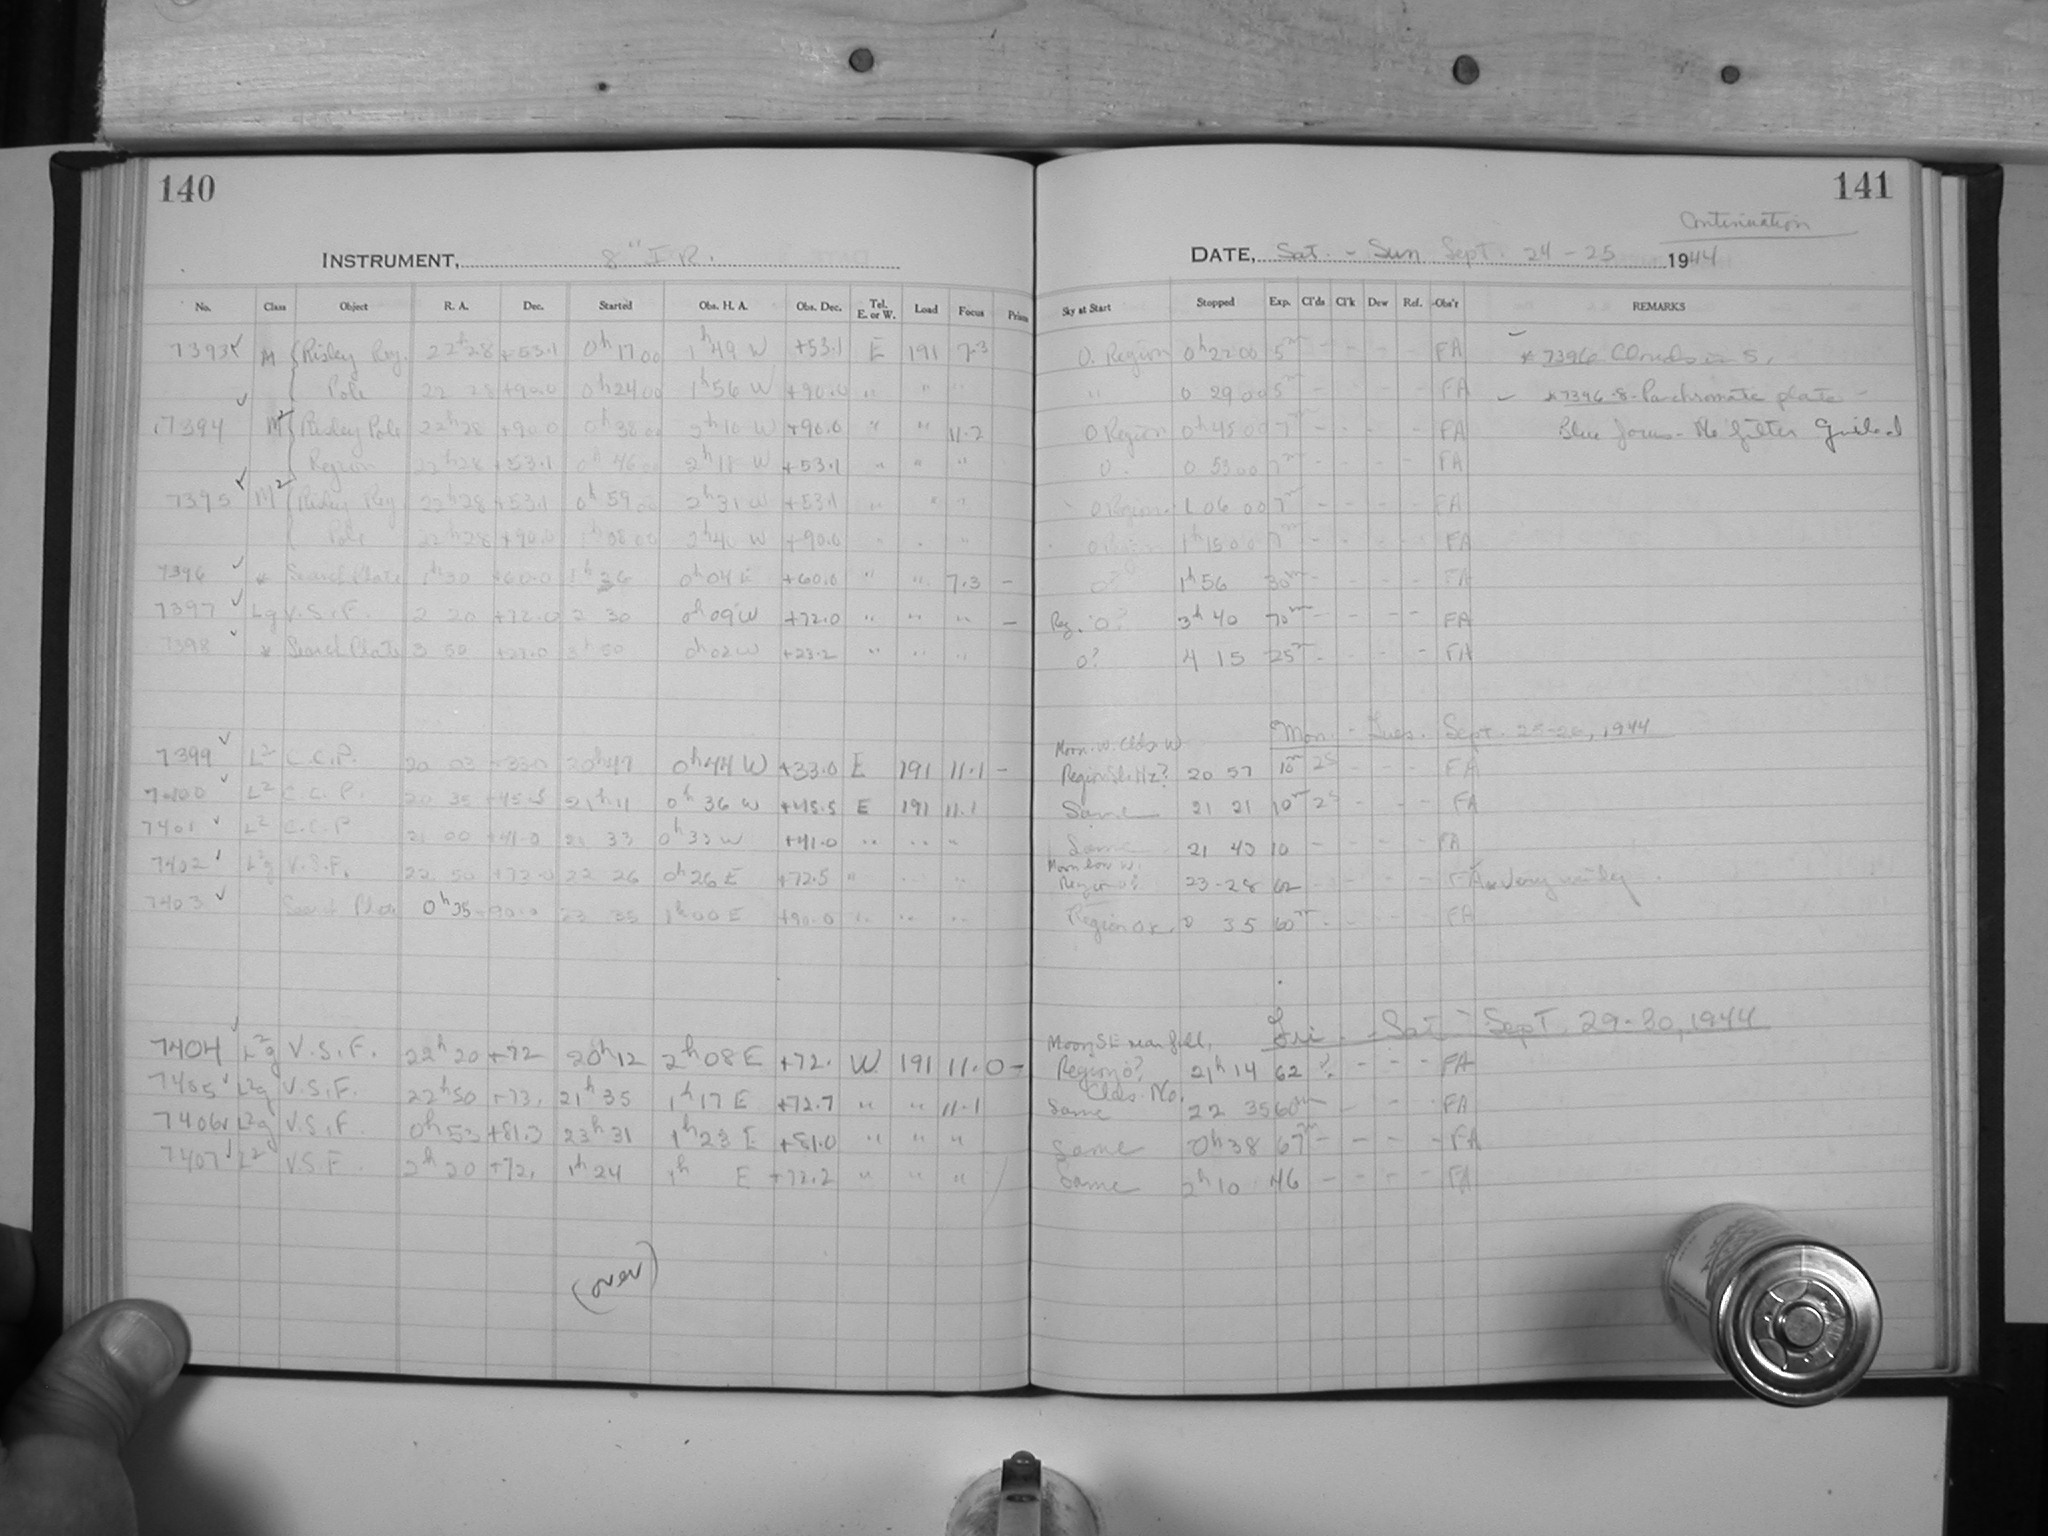 140
INSTRUMENT, 8" I R.
No. Class Object R. A. Dec. Started Obs. H. A. Obs. Dec. Tel. E. or W. Load Focus Prism
7393 M Risley Reg. 22h28 +53.1 0h17 00 1h49 W +53.1 E 191 7.3
Pole 22 28 +90.0 0h24 00 1h56 W +90.0 " " "
7394 M2 Risley Pole 22h28 +90.0 0h38 00 2h10 W +90.0 " " 11.2
Region 22h28 +53.1 0h 46 00 2h18 W +53.1 " " "
7395 M2 Risley Reg 22h28 +53.1 0h 59 00 2h31 W +53.1 " " "
Pole 22h28 +90.0 1h08 00 2h40 W +90.0 " " "
7396 * Search Plate 1h30 +60.0 1h 26 0h04 E +60.0 " " 7.3 –
7397 Lg V.S.F. 2 20 +72.0 2 30 0h09 W +72.0 " " " –
7398 * Search Plate 3 50 3h50 0h02 W +23.2 " " "
7399 L2 C.C.P. 20 03 +33.0 20h47 0h44 W +33.0 E 191 11.1 –
7400 L2 C.C.P. 20 35 +45.5 21h11 0h 36 W +45.5 E 191 11.1
7401 L2 C.C.P 21 00 +41.0 21 33 0h33 W +41.0 " " "
7402 L2g V.S.F. 22 50 +73.0 22 26 0h26 E +72.5 " " "
7403 Search Plate 0h35 +90.0 23 35 1h00 E +90.0 " " "
7404 L2g V.S.F. 22h20 +72 20h12 2h08 E +72. W 191 11.0 –
7405 L2g V.S.F. 22h50 +73. 21h35 1h17 E +72.7 " " 11.1
7406 L2g V.S.F. 0h53 +81.3 23h31 1h23 E +81.0 " " "
7407 L2 V.S.F. 2h20 +72. 1h24 1h E +72.2 " " "
(over)
141
Continuation
DATE, Sat. - Sun Sept. 24-25 1944
Sky at Start Stopped Exp. Cl'ds Cl'k Dew Ref. Obs'r REMARKS
O. Region 0h22 00 5m – – – – FA * 7396 Clouds in S.
" 0 29 00 5m – – – – FA * 7396-8 - Panchromatic plate -
O Region 0h45 00 7m – – – – FA Blue focus - No filter Guided
O. 0 53 00 7m – – – – FA
O Region 1 06 00 7m – – – – FA
O Region 1h15 00 7m – – – – FA
O? 1h56 30m – – – – FA
Reg. O? 3h 40 70m – – – – FA
O? 4 15 25m – – – – FA
Mon. - Tues. Sept. 25-26, 1944
Moon. W. Clds. W
Region 20 57 10m 25 – – – FA
Same 21 21 10m – – – FA
Same 21 43 10 – – – – FA
Moon low W.
Region 23-28 62 – – – – FA Very windy
Region Ok. 0 35 60m – – – – FA
Fri. - Sat - Sept. 29-30, 1944
Moon, SE near full.
Region O? 21h14 62 ? – – – FA
Clds. No.
Same 22 35 60m – – – – FA
Same 0h38 67m – – – – FA
Same 2h10 46 – – – – FA